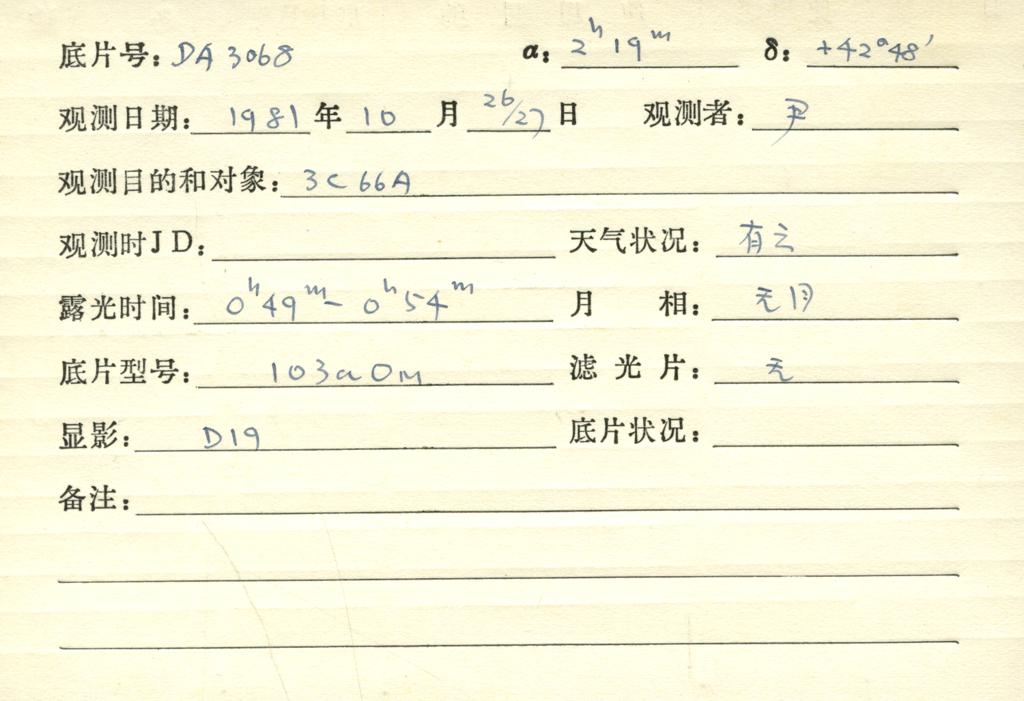 底片号: DA 3068 α: 2ʰ 19ᵐ δ: +42°48′
观测日期: 1981 年 10 月 26/27 日 观测者: 尹
观测目的和对象: 3C 66A
观测时JD: 天气状况: 有云
露光时间: 0ʰ49ᵐ- 0ʰ54ᵐ 月 相: 无月
底片型号: 103aOm 滤光片: 无
显影: D19 底片状况:
备注: